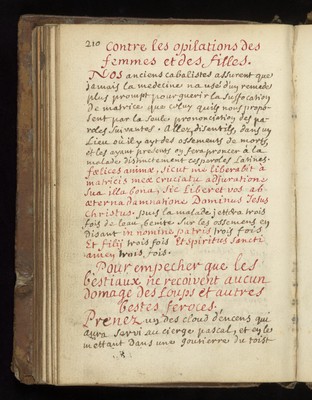 210
Contre les opilations des
femmes et des filles.
Nos anciens cabalistes assurent que
jamais la medecine n'a usé d'un remede
plus prompt pour guerir la suffocation
de matrice que celuy qu'ils nous propo-
sent par la seule prononciation des pa-
roles suivantes. Allez, disent-ils, dans un
Lieu où il y ayt des ossemens de morts,
et les ayant presens on fera prononcer à la
malade distinctement ces paroles Latines.
fœlices animæ, sicut me liberabit à
matricis meæ cruciatu adjuratione
sua illa bona, sic Liberet vos ab
æterna damnatione Dominus Jesus
Christus. puis la malade jettera trois
fois de l'eau benite sur les ossemens en
disant in nomine patris trois fois,
Et filij trois fois Et spiritus sancti
amen trois fois.
Pour empecher que les
bestiaux ne recoivent aucun
domage des Loups et autres
bestes feroces.
Prenez un des cloud d'encens qui
aura servi au cierge pascal, et en le
mettant dans une gouttiere du toist